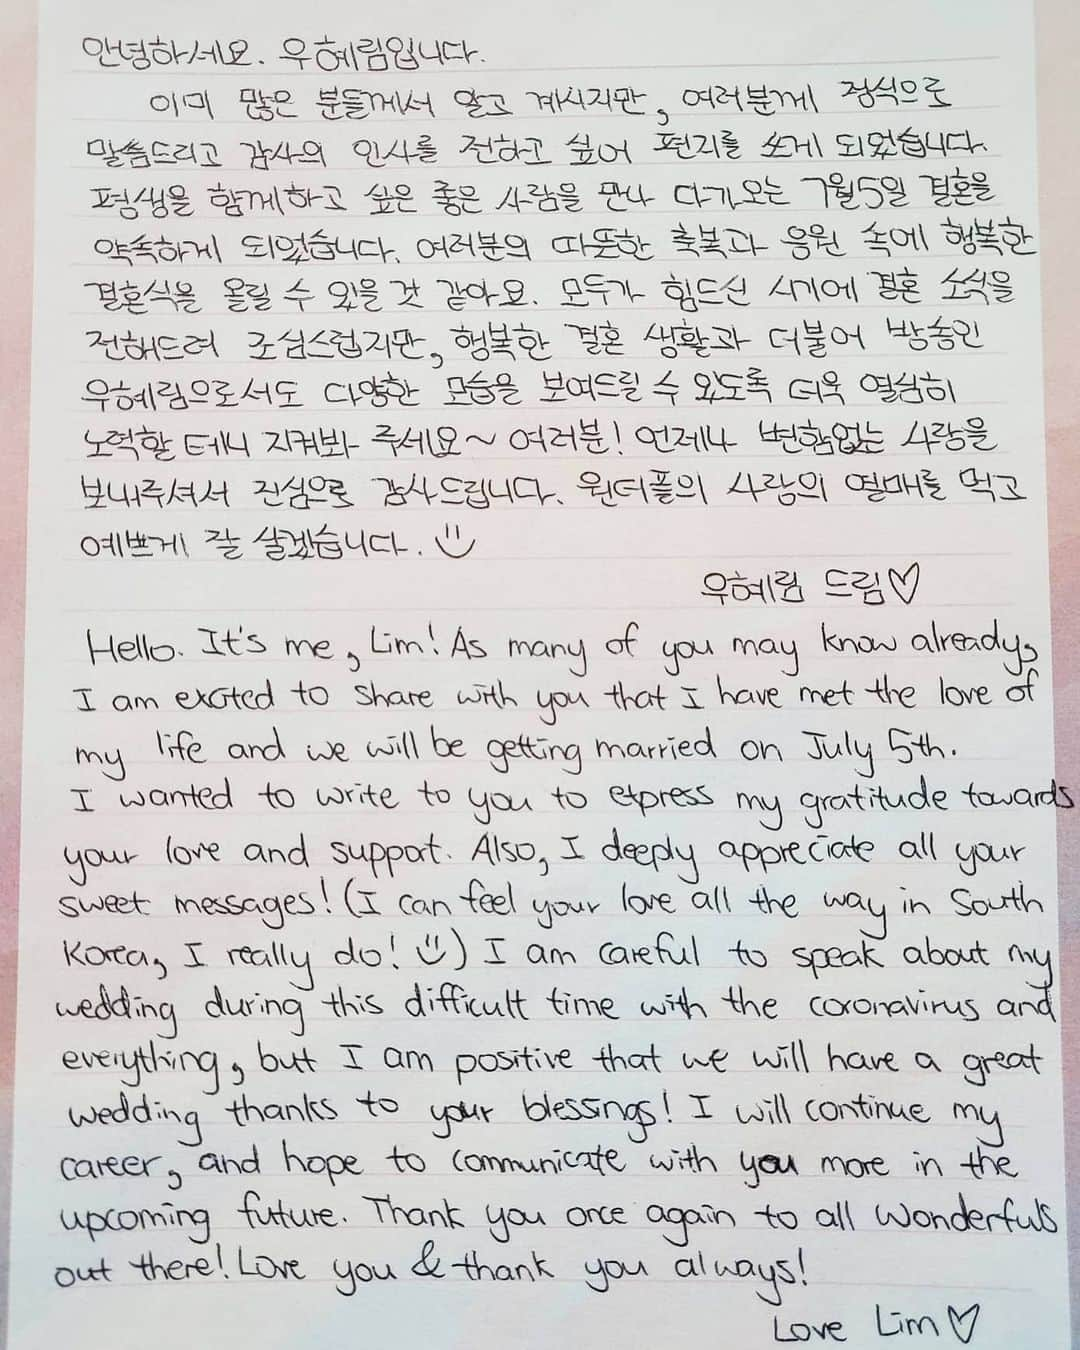 안녕하세요. 우혜림입니다.
이미 많은 분들께서 알고 계시지만, 여러분께 정식으로
말씀드리고 감사의 인사를 전하고 싶어 편지를 쓰게 되었습니다.
평생을 함께하고 싶은 좋은 사람을 만나 다가오는 7월5일 결혼을
약속하게 되었습니다. 여러분의 따뜻한 축복과 응원 속에 행복한
결혼식을 올릴 수 있을 것 같아요. 모두가 힘드신 시기에 결혼 소식을
전해드려 조심스럽지만, 행복한 결혼 생활과 더불어 방송인
우혜림으로서도 다양한 모습을 보여드릴 수 있도록 더욱 열심히
노력할 테니 지켜봐 주세요~ 여러분! 언제나 변함없는 사랑을
보내주셔서 진심으로 감사드립니다. 원더풀의 사랑의 열매를 먹고
예쁘게 잘 살겠습니다. :)
우혜림 드림♡
Hello. It's me, Lim! As many of you may know already,
I am excited to share with you that I have met the love of
my life and we will be getting married on July 5th.
I wanted to write to you to express my gratitude towards
your love and support. Also, I deeply appreciate all your
sweet messages! (I can feel your love all the way in South
Korea, I really do! :)) I am careful to speak about my
wedding during this difficult time with the coronavirus and
everything, but I am positive that we will have a great
wedding thanks to your blessings! I will continue my
career, and hope to communicate with you more in the
upcoming future. Thank you once again to all Wonderfuls
out there! Love you & thank you always!
Love Lim♡